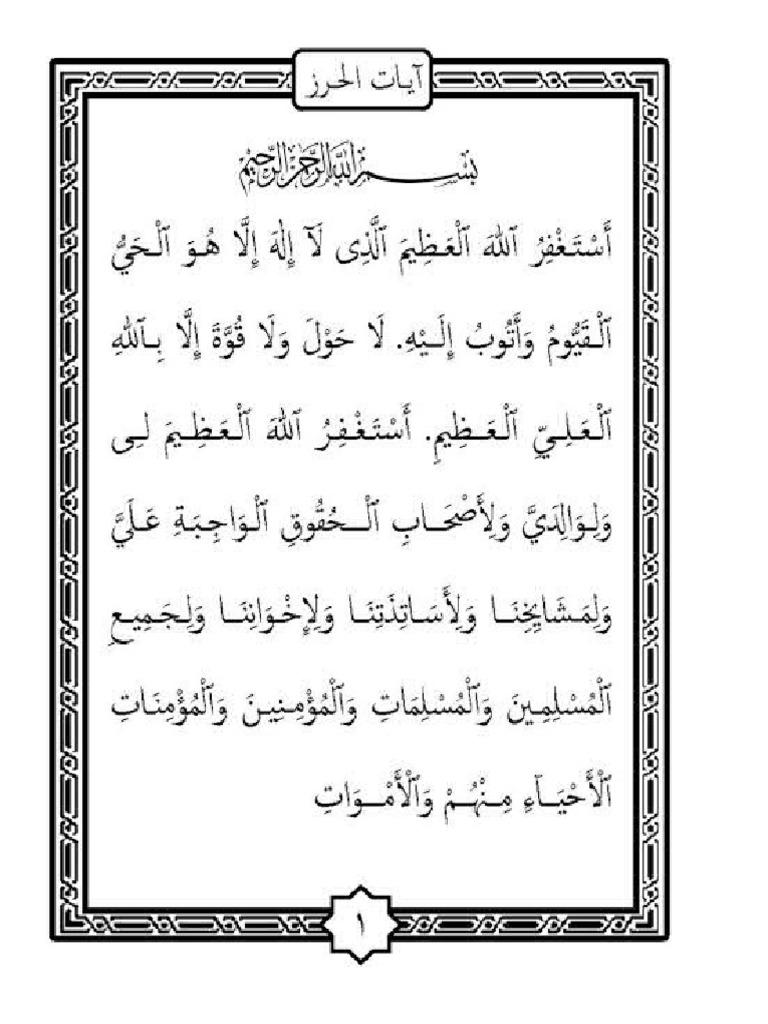 آيات الحرز
بِسْمِ اللَّهِ الرَّحْمَنِ الرَّحِيمِ
أَسْتَغْفِرُ ٱللهَ ٱلْعَظِيمَ ٱلَّذِى لَآ إِلٰهَ إِلَّا هُوَ ٱلْحَيُّ
ٱلْقَيُّومُ وَأَتُوبُ إِلَيْهِ. لَا حَوْلَ وَلَا قُوَّةَ إِلَّا بِٱللهِ
ٱلْعَلِيِّ ٱلْعَظِيمِ. أَسْتَغْفِرُ ٱللهَ ٱلْعَظِيمَ لِى
وَلِوَالِدَيَّ وَلِأَصْحَابِ ٱلْحُقُوقِ ٱلْوَاجِبَةِ عَلَيَّ
وَلِمَشَايِخِنَا وَلِأَسَاتِذَتِنَا وَلِإِخْوَانِنَا وَلِجَمِيعِ
ٱلْمُسْلِمِينَ وَٱلْمُسْلِمَاتِ وَٱلْمُؤْمِنِينَ وَٱلْمُؤْمِنَاتِ
ٱلْأَحْيَآءِ مِنْهُمْ وَٱلْأَمْوَاتِ
١